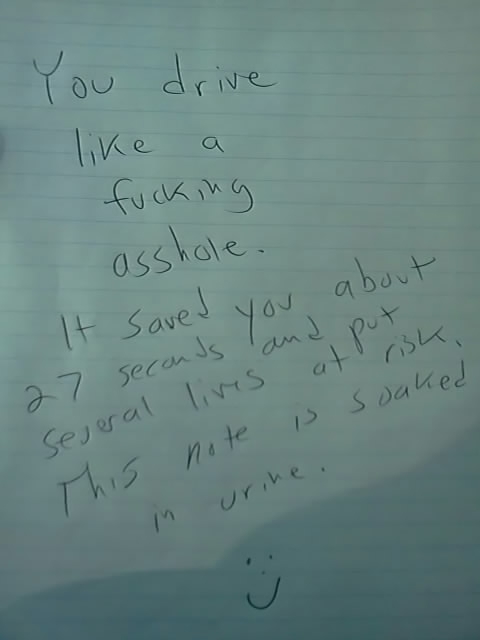 You drive
like a
fucking
asshole.
It saved you about
27 seconds and put
several lives at risk.
This note is soaked
in urine.